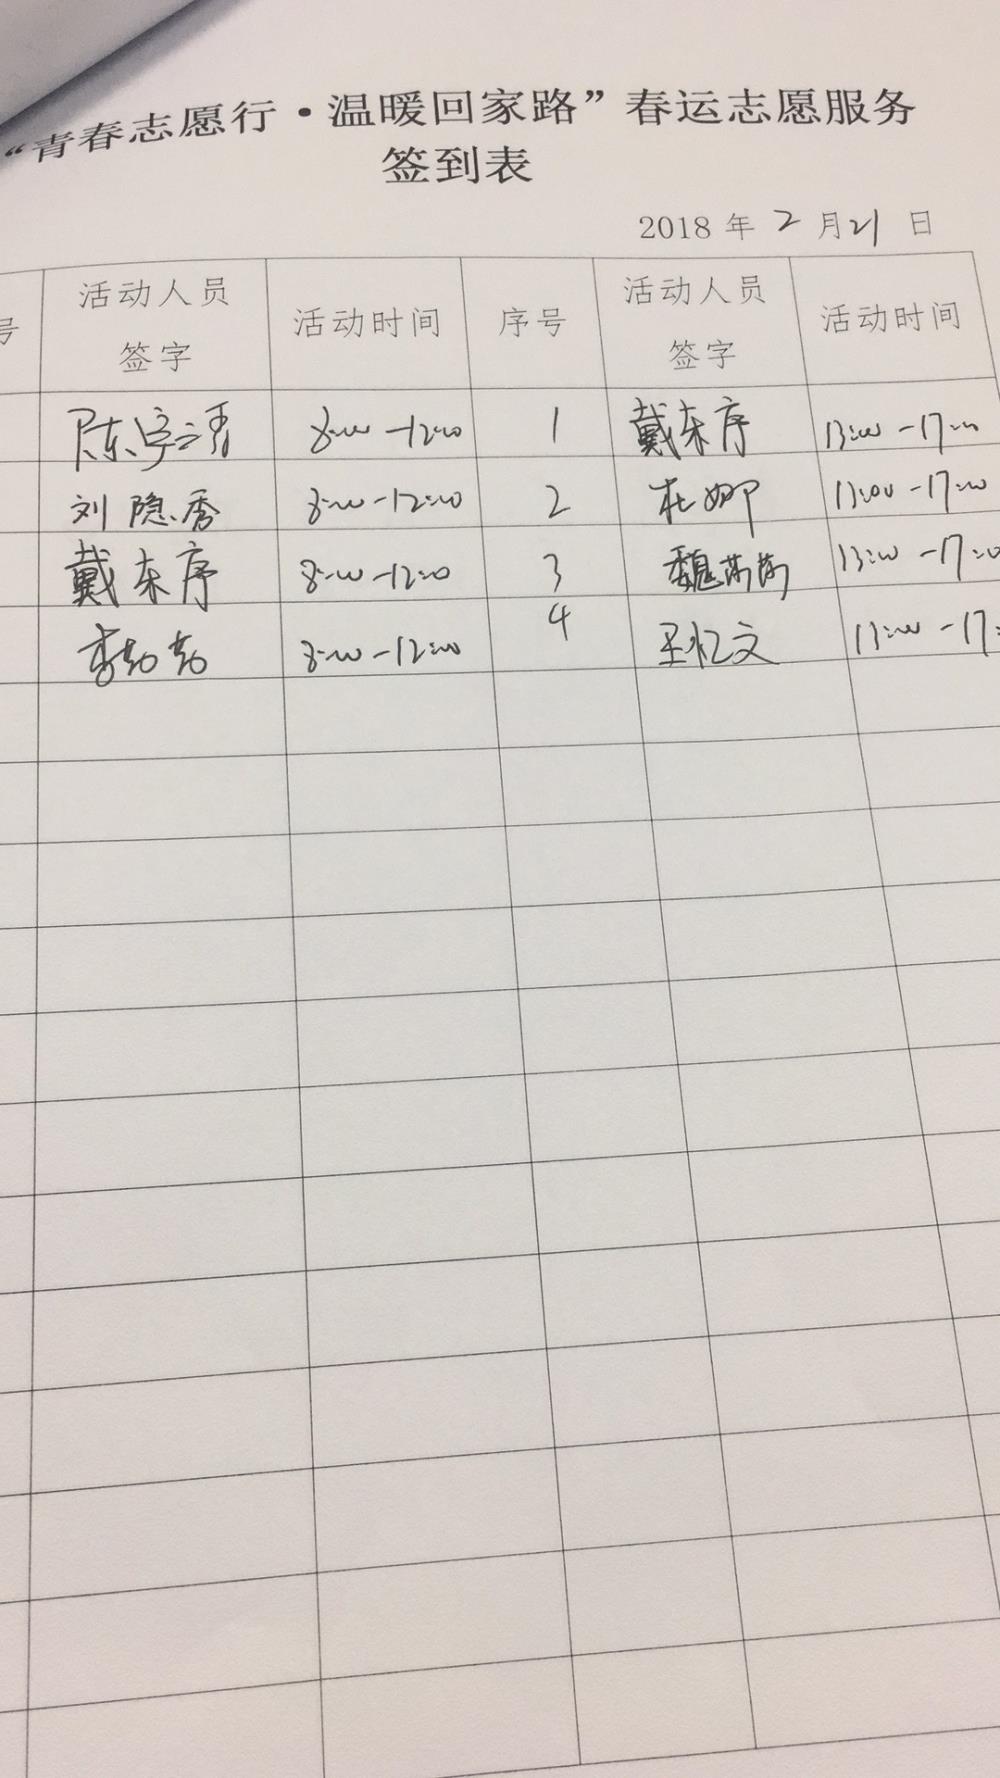 “青春志愿行·温暖回家路”春运志愿服务
签到表
2018 年 2 月 21 日
号 活动人员签字 活动时间 序号 活动人员签字 活动时间
陈宇清 8:00-12:00 1 戴东序 13:00-17:00
刘隐香 8:00-12:00 2 杜娜 13:00-17:00
戴东序 8:00-12:00 3 魏苪苪 13:00-17:00
李劼劼 8:00-12:00 4 王忆文 13:00-17: